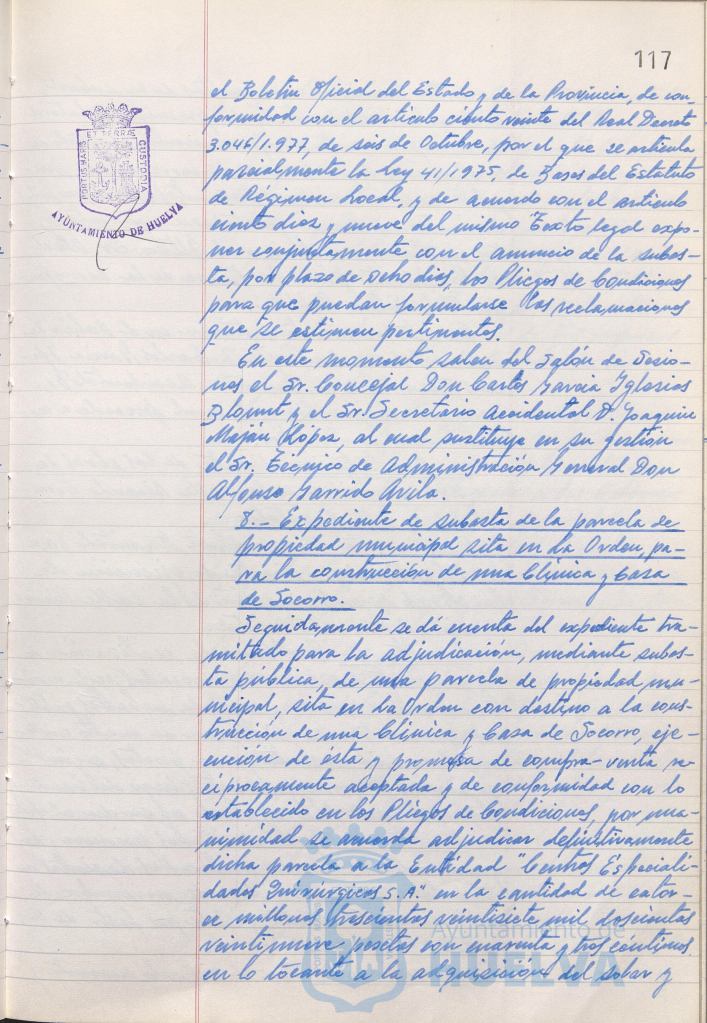 117
el Boletín Oficial del Estado y de la Provincia, de con-
formidad con el artículo ciento veinte del Real Decreto
3.046/1.977, de seis de Octubre, por el que se articula
parcialmente la Ley 41/1975, de Bases del Estatuto
de Régimen Local, y de acuerdo con el artículo
ciento diez y nueve del mismo Texto legal expo-
ner conjuntamente con el anuncio de la subas-
ta, por plazo de ocho días, los Pliegos de Condiciones
para que puedan formularse las reclamaciones
que se estimen pertinentes.
En este momento salen del Salón de Sesio-
nes el Sr. Concejal Don Carlos García Yglesias
Blount y el Sr. Secretario Accidental D. Joaquin
Maján López, al cual sustituye en su gestión
el Sr. Técnico de Administración General Don
Alfonso Garrido Avila.
8.- Expediente de subasta de la parcela de
propiedad municipal sita en La Orden, pa-
ra la construcción de una Clínica y Casa
de Socorro.
Seguidamente se dá cuenta del expediente tra-
mitado para la adjudicación, mediante subas-
ta pública, de una parcela de propiedad mu-
nicipal, sita en La Orden con destino a la cons-
trucción de una Clínica y Casa de Socorro, eje-
cución de ésta y promesa de compra-venta re-
ciprocamente aceptada y de conformidad con lo
establecido en los Pliegos de Condiciones, por una-
nimidad se acuerda adjudicar definitivamente
dicha parcela a la Entidad "Centros Especiali-
dades Quirúrgicos S.A." en la cantidad de cator-
ce millones trescientas veintisiete mil doscientas
veintinueve pesetas con cuarenta y tres céntimos
en lo tocante a la adquisición del solar y
PORTUS MARIS ET TERRAE CUSTODIA
AYUNTAMIENTO DE HUELVA
Ayuntamiento de
HUELVA